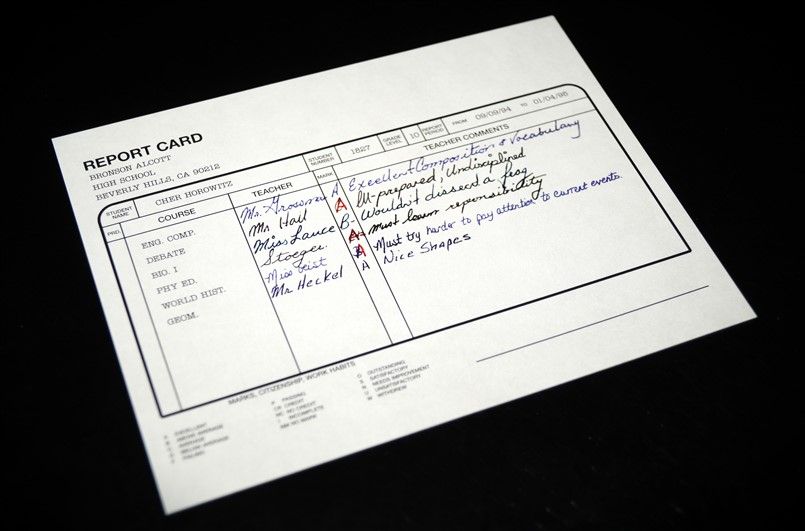 REPORT CARD
BRONSON ALCOTT
HIGH SCHOOL
BEVERLY HILLS, CA 90212
STUDENT NAME CHER HOROWITZ STUDENT NUMBER 1827 GRADE LEVEL 10 REPORT PERIOD FROM 09/09/94 TO 01/04/95
PRD. COURSE TEACHER MARK TEACHER COMMENTS
ENG. COMP. Mr. Grossman A Excellent Composition & Vocabulary
DEBATE Mr Hall A Ill-prepared, Undisciplined
BIO. I Miss Lance B- Wouldn't dissend a frog
PHY ED. Stoeger. A- Must learn repensibility
WORLD HIST. Miss Geist A Must try harder to pay attention to current events.
GEOM. Mr Heckel A Nice Shapes
MARKS, CITIZENSHIP, WORK HABITS
A EXCELLENT P PASSING O OUTSTANDING
B ABOVE AVERAGE CR CREDIT S SATISFACTORY
C AVERAGE NC NO CREDIT N NEEDS IMPROVEMENT
D BELOW AVERAGE I INCOMPLETE U UNSATISFACTORY
F FAILING NM NO MARK W WITHDREW